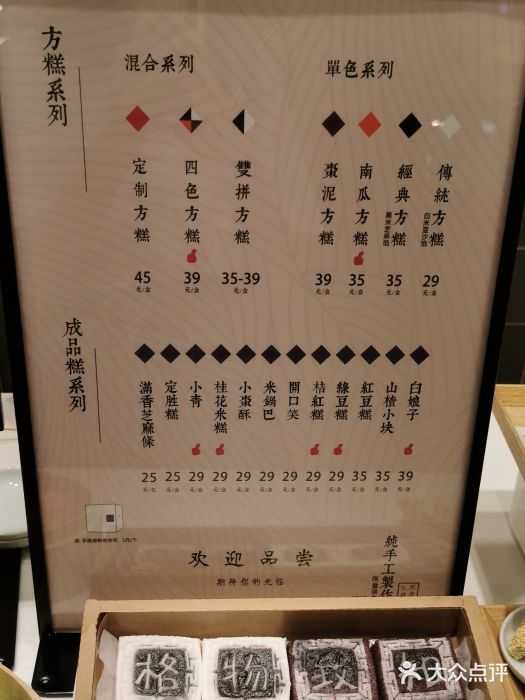 方糕系列
混合系列
定制方糕
45
元/盒
四色方糕
39
元/盒
雙拼方糕
35-39
元/盒
單色系列
棗泥方糕
39
元/盒
南瓜方糕
35
元/盒
經典方糕
黑米芝麻馅
35
元/盒
傳統方糕
白米豆沙馅
29
元/盒
成品糕系列
滿香芝麻條
25
元/包
定胜糕
25
元/盒
小青
29
元/盒
桂花米糕
29
元/盒
小棗酥
29
元/盒
米鍋巴
29
元/盒
開口笑
29
元/盒
桔紅糕
29
元/盒
綠豆糕
29
元/盒
紅豆糕
35
元/盒
山楂小块
35
元/盒
白娘子
39
元/盒
1元/个
欢迎品尝
期待您的光临
純手工製作
格物致
大众点评